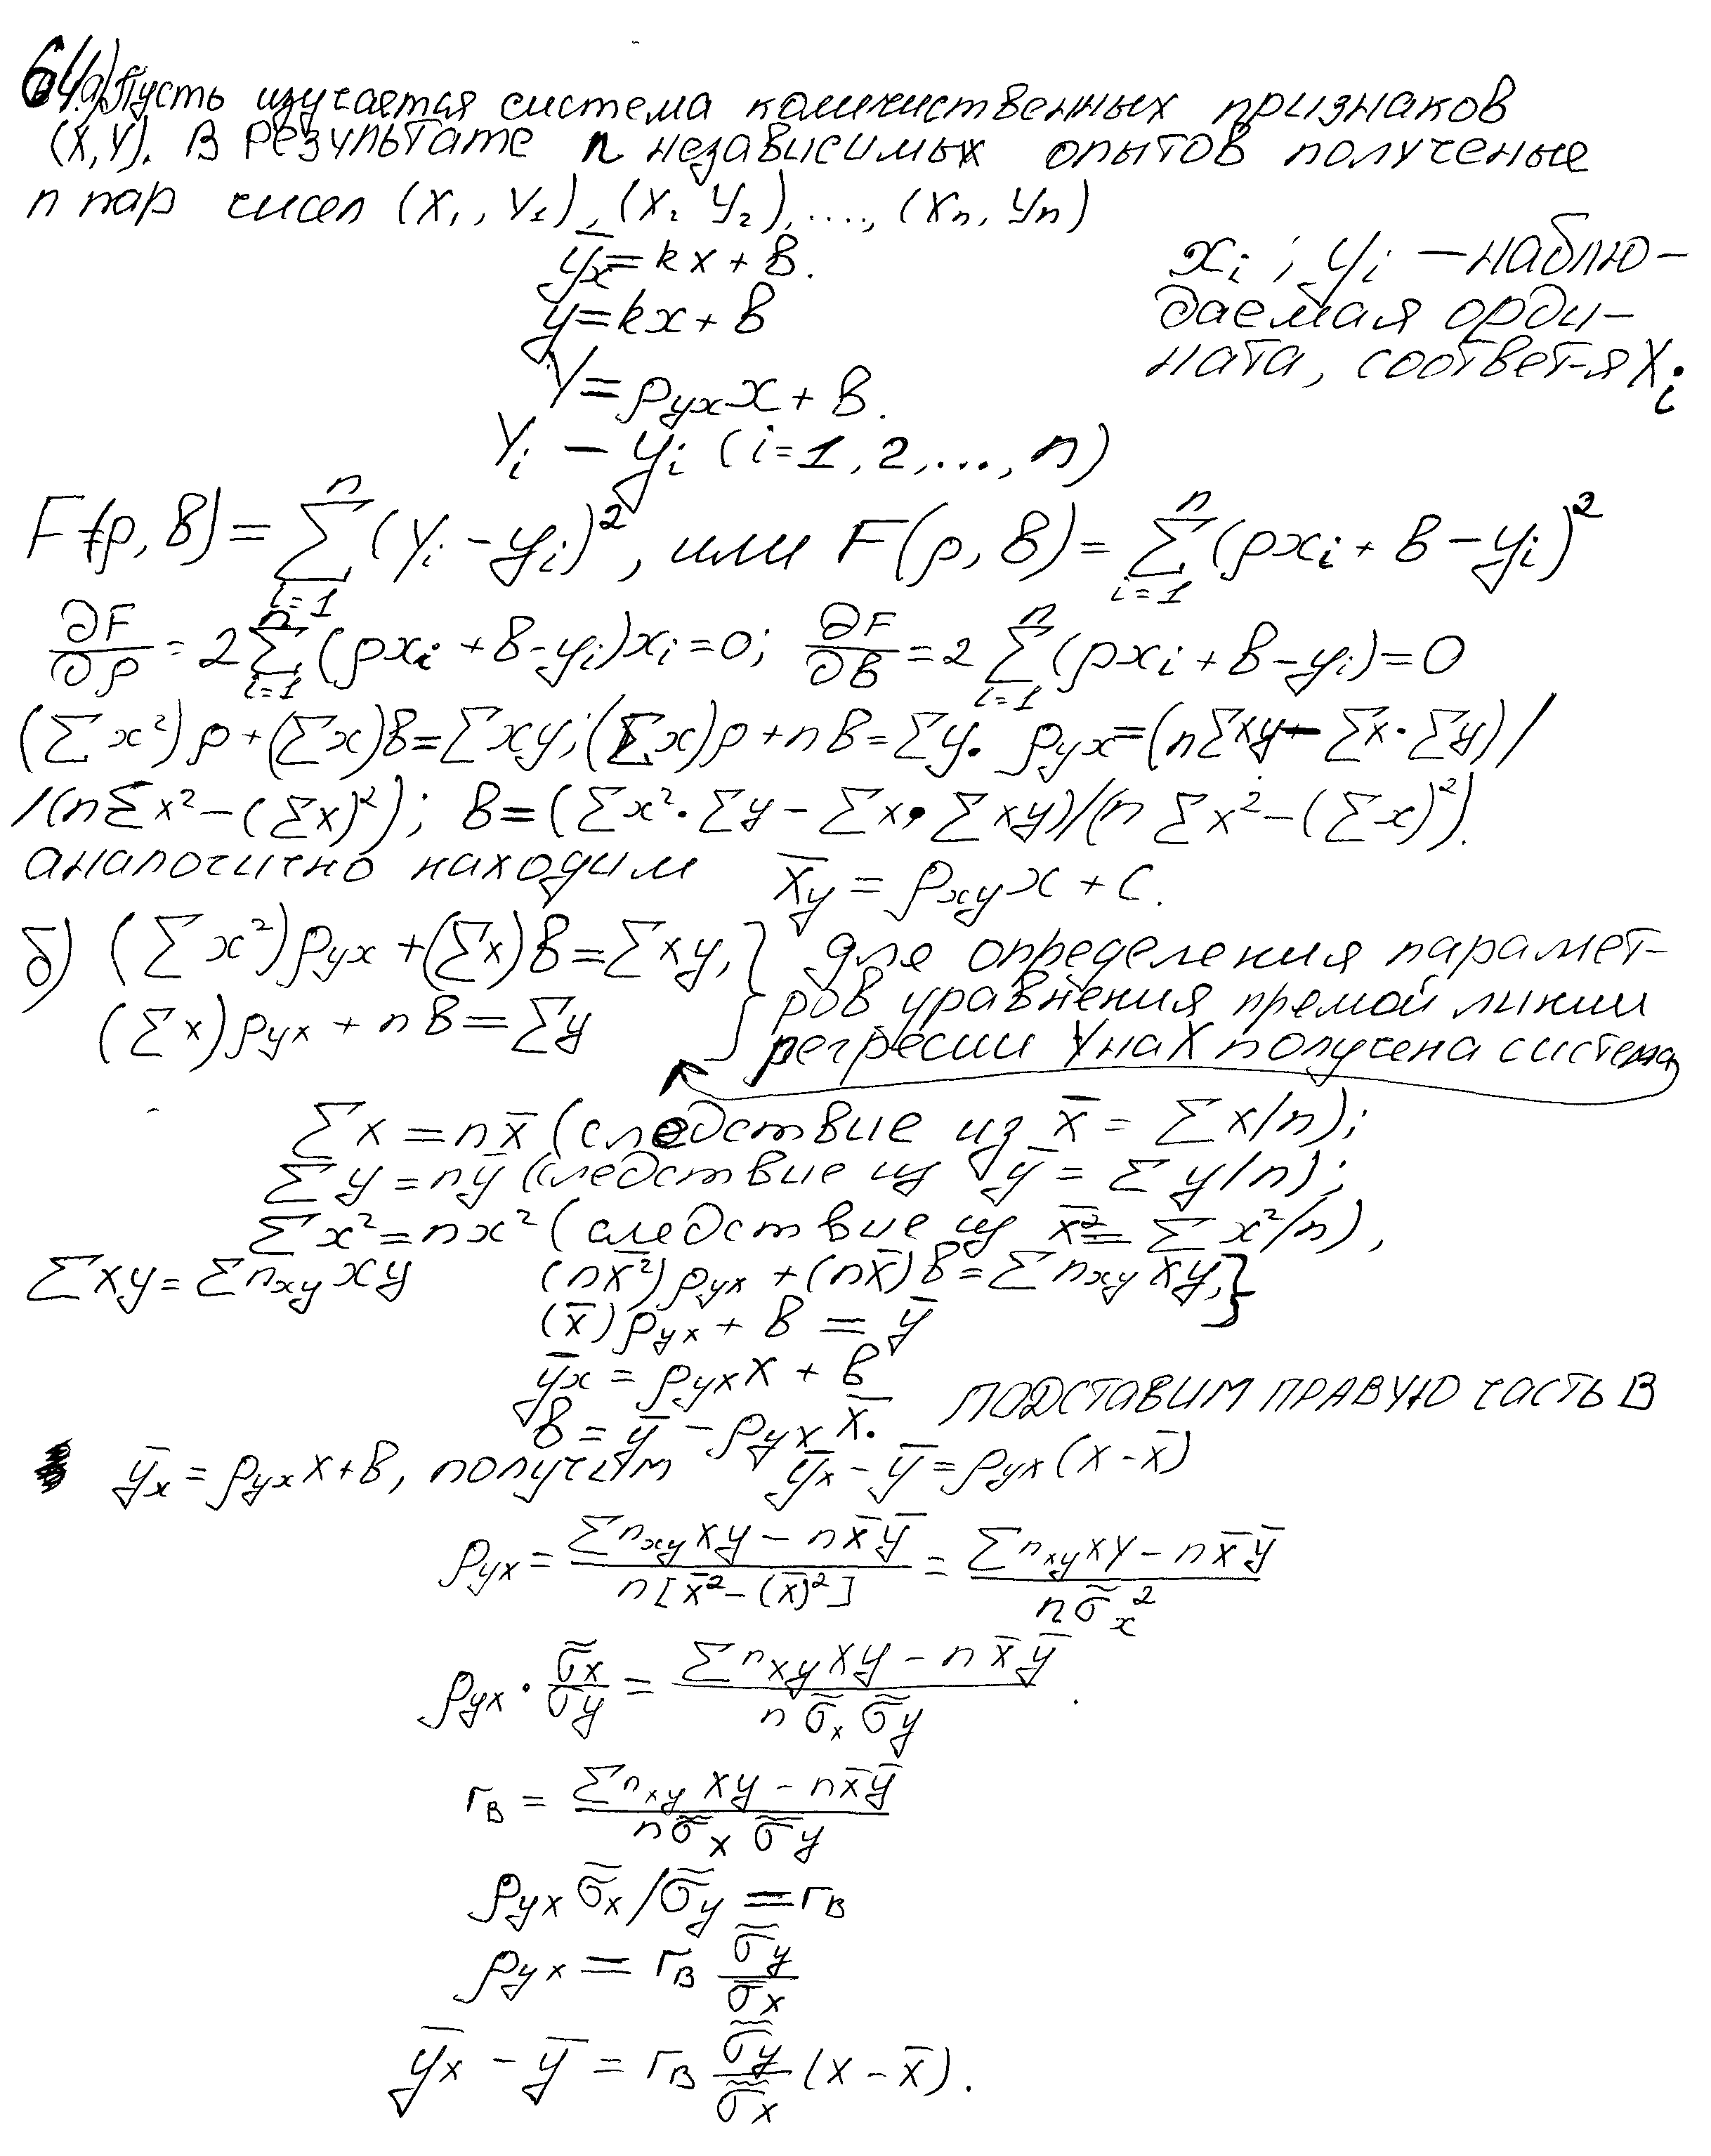 64.а) Пусть изучается система количественных признаков
(X,Y). В результате n независимых опытов полученые
n пар чисел (x₁, y₁), (x₂ y₂), ...., (xₙ, yₙ)
ȳₓ = kx + b.
y = kx + b
Y = ρyx x + b.
xᵢ ; yᵢ – наблю-
даемая орди-
ната, соответ-я Xᵢ
Yᵢ – yᵢ (i=1, 2, ..., n)
F(ρ, b) = ∑ᵢ₌₁ⁿ (Yᵢ – yᵢ)², или F(ρ, b) = ∑ᵢ₌₁ⁿ (ρxᵢ + b – yᵢ)²
∂F/∂ρ = 2∑ᵢ₌₁ⁿ (ρxᵢ + b – yᵢ)xᵢ = 0; ∂F/∂b = 2∑ᵢ₌₁ⁿ (ρxᵢ + b – yᵢ) = 0
(∑x²)ρ + (∑x)b = ∑xy; (∑x)ρ + nb = ∑y. ρyx = (n∑xy – ∑x·∑y)/
/(n∑x² – (∑x)²); b = (∑x²·∑y – ∑x·∑xy)/(n∑x² – (∑x)²).
аналогично находим x̄y = ρxy x + C.
б) (∑x²)ρyx + (∑x)b = ∑xy, } для определения парамет-
(∑x)ρyx + nb = ∑y } ров уравнения прямой линии
регресии Y на X получена система
∑x = nx̄ (следствие из x̄ = ∑x/n);
∑y = nȳ (следствие из ȳ = ∑y/n);
∑x² = nx² (следствие из x̄² = ∑x²/n),
∑xy = ∑nxy xy (nx̄²)ρyx + (nx̄)b = ∑nxy xy, }
(x̄)ρyx + b = ȳ
ȳx = ρyx x + b
b = ȳ – ρyx x̄. ПОДСТАВИМ ПРАВУЮ ЧАСТЬ В
ȳx = ρyx x + b, получим ȳx – ȳ = ρyx (x – x̄)
ρyx = (∑nxy xy – nx̄ȳ) / (n[x̄² – (x̄)²]) = (∑nxy xy – nx̄ȳ) / (nσ̃x²)
ρyx · σ̃x/σ̃y = (∑nxy xy – nx̄ȳ) / (nσ̃x σ̃y).
rв = (∑nxy xy – nx̄ȳ) / (nσ̃x σ̃y)
ρyx σ̃x/σ̃y = rв
ρyx = rв σ̃y/σ̃x
ȳx – ȳ = rв σ̃y/σ̃x (x – x̄).